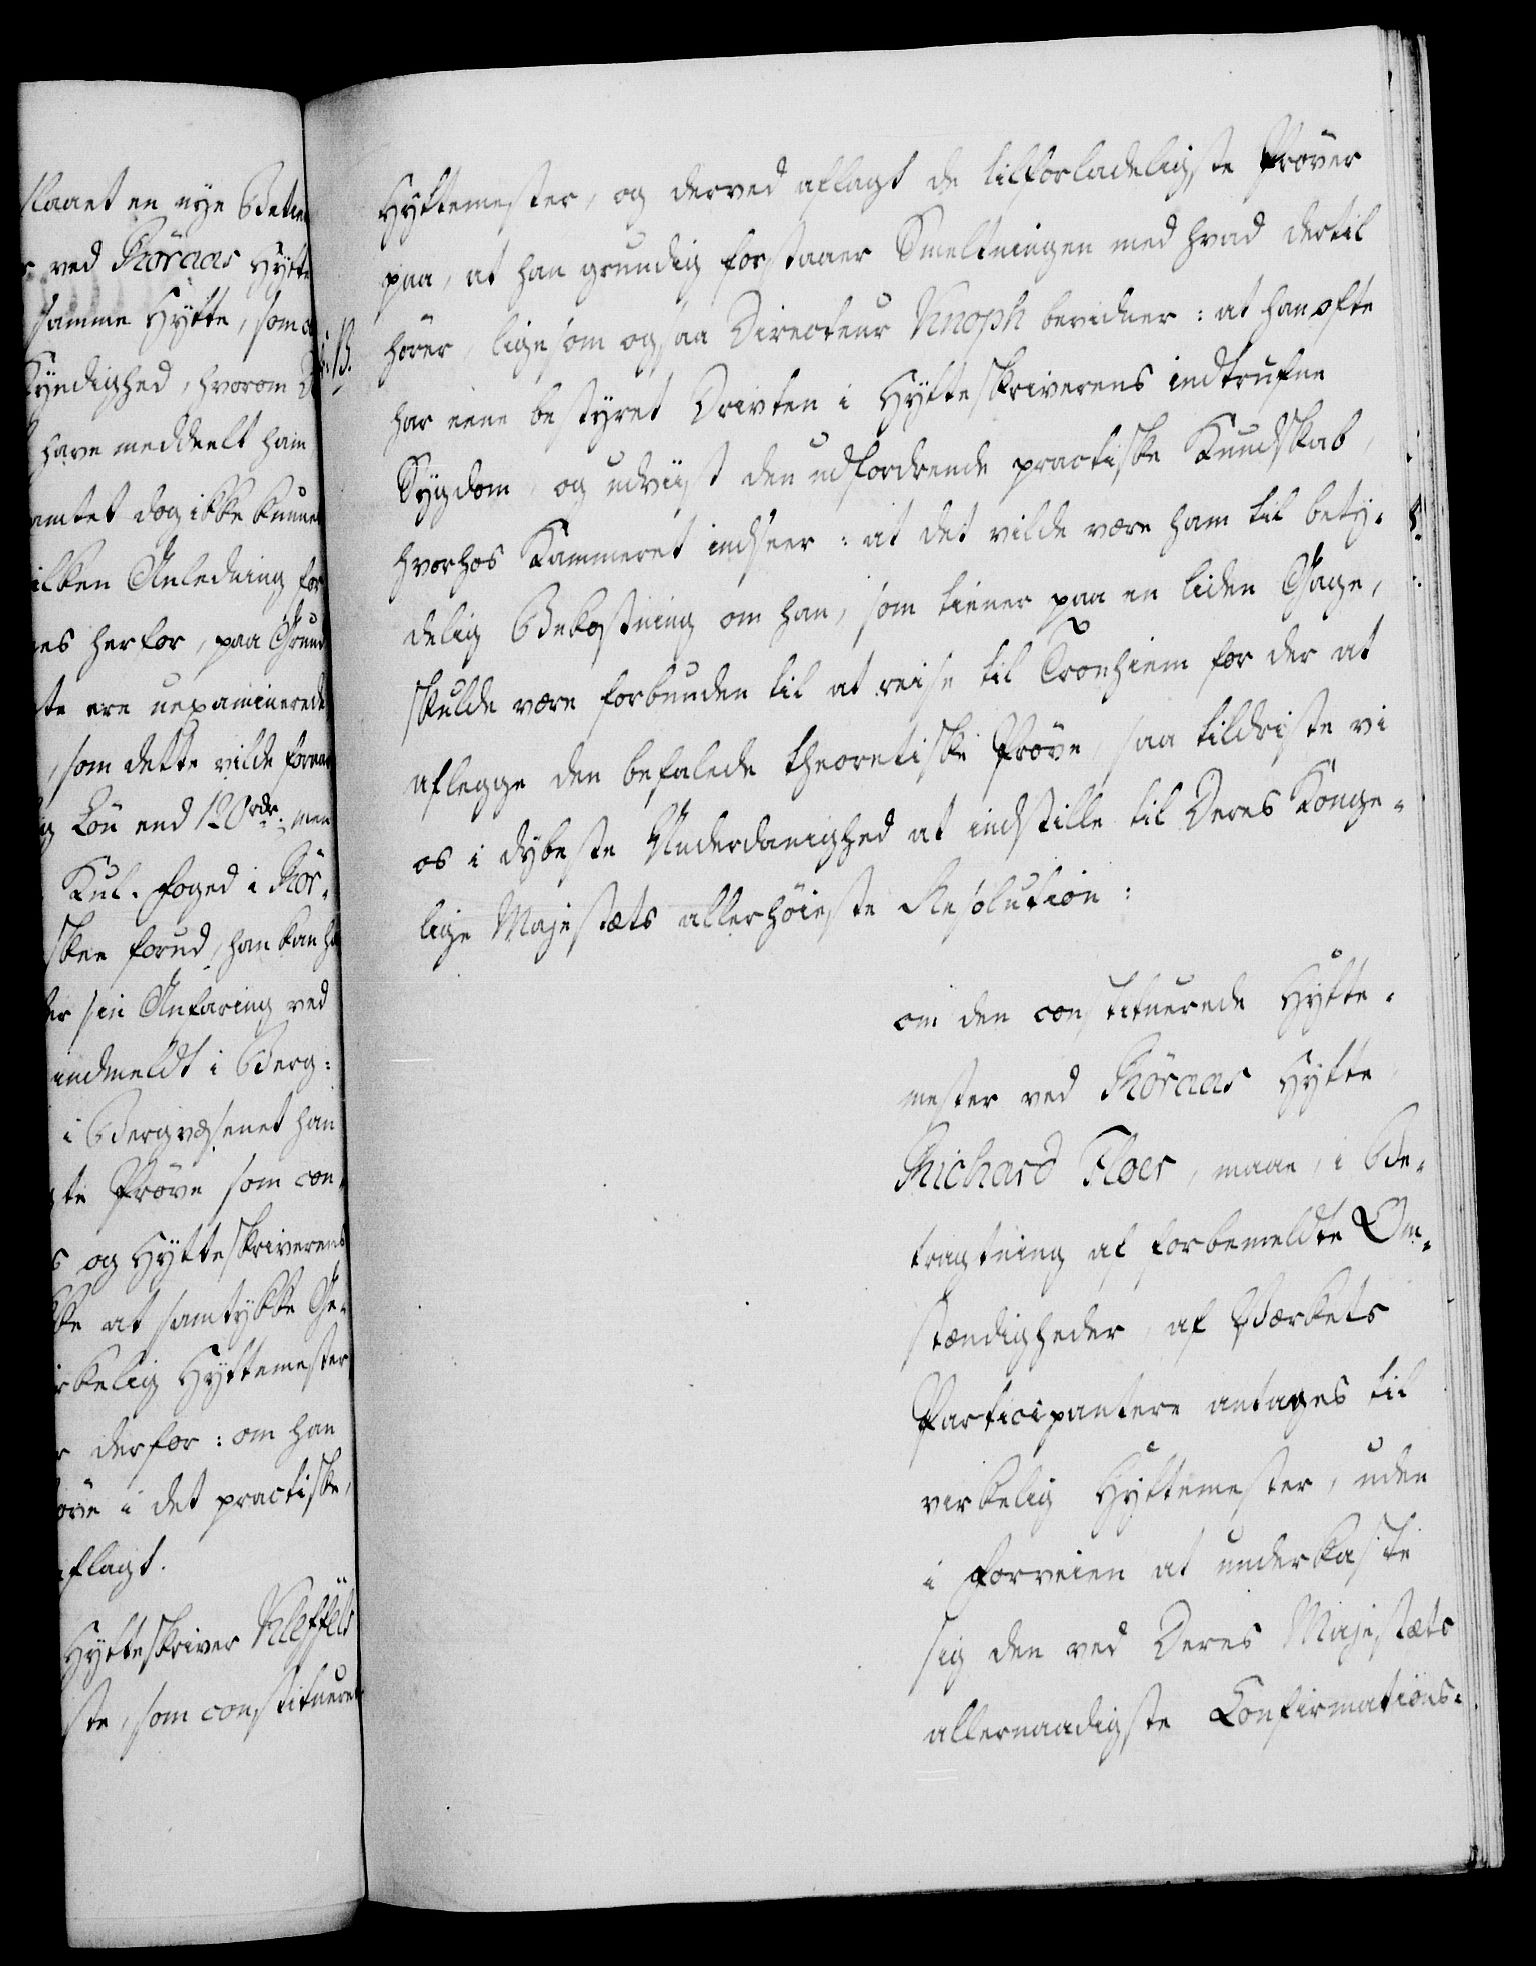 slaaet en nye Betien
ved Röraas Hytte
samme Hytte, som
Kyndighed, hvorom
have meddeelt ham
amtet dog ikke kunne
ilken Anledning for
es herfor, paa Grund
te ere uexaminerede
, som dette vilde foraar
Lön end 120 rdr. men
Kul-foged i Rör-
skee forud, han kan
er sin Anfaring ved
indmeldt i Berg-
i Bergvæsenet han
te Pröve som con-
og Hytteskriverens
ke at samtykke Ge-
rkelig Hyttemester
r derfor: om han
öve i det practiske,
aflagt.
Hytteskriver Kleffels
ste, som constitueret
B.
Hyttemester, og derved aflagt de tilforladeligste Pröver
paa, at han grundig forstaaer Smeltningen med hvad dertil
hører, ligesom ogsaa Directeur Knoph bevidner: at han ofte
har eene bestyret Driften i Hytteskriverens indtrufne
Sygdom, og udviist den udfordrende practiske Kundskab,
hvorhos Kammeret indseer: at det vilde være ham til bety-
delig Bekostning om han, som tiener paa en liden Gage,
skulde være forbunden til at reise til Tronhiem for der at
aflegge den befalede theoretiske Pröve, saa tildriste vi
os i dybeste Underdanighed at indstille til Deres Konge-
lige Majestæts allerhöieste Resolution:
om den constituerede Hytte-
mester ved Röraas Hytte,
Richard Floer, maae, i Be-
tragtning af forbemeldte Om-
stændigheder, af Værkets
Participantere antages til
virkelig Hyttemester, uden
i forveien at underkaste
sig den ved Deres Majestæts
allernaadigste Confirmations-